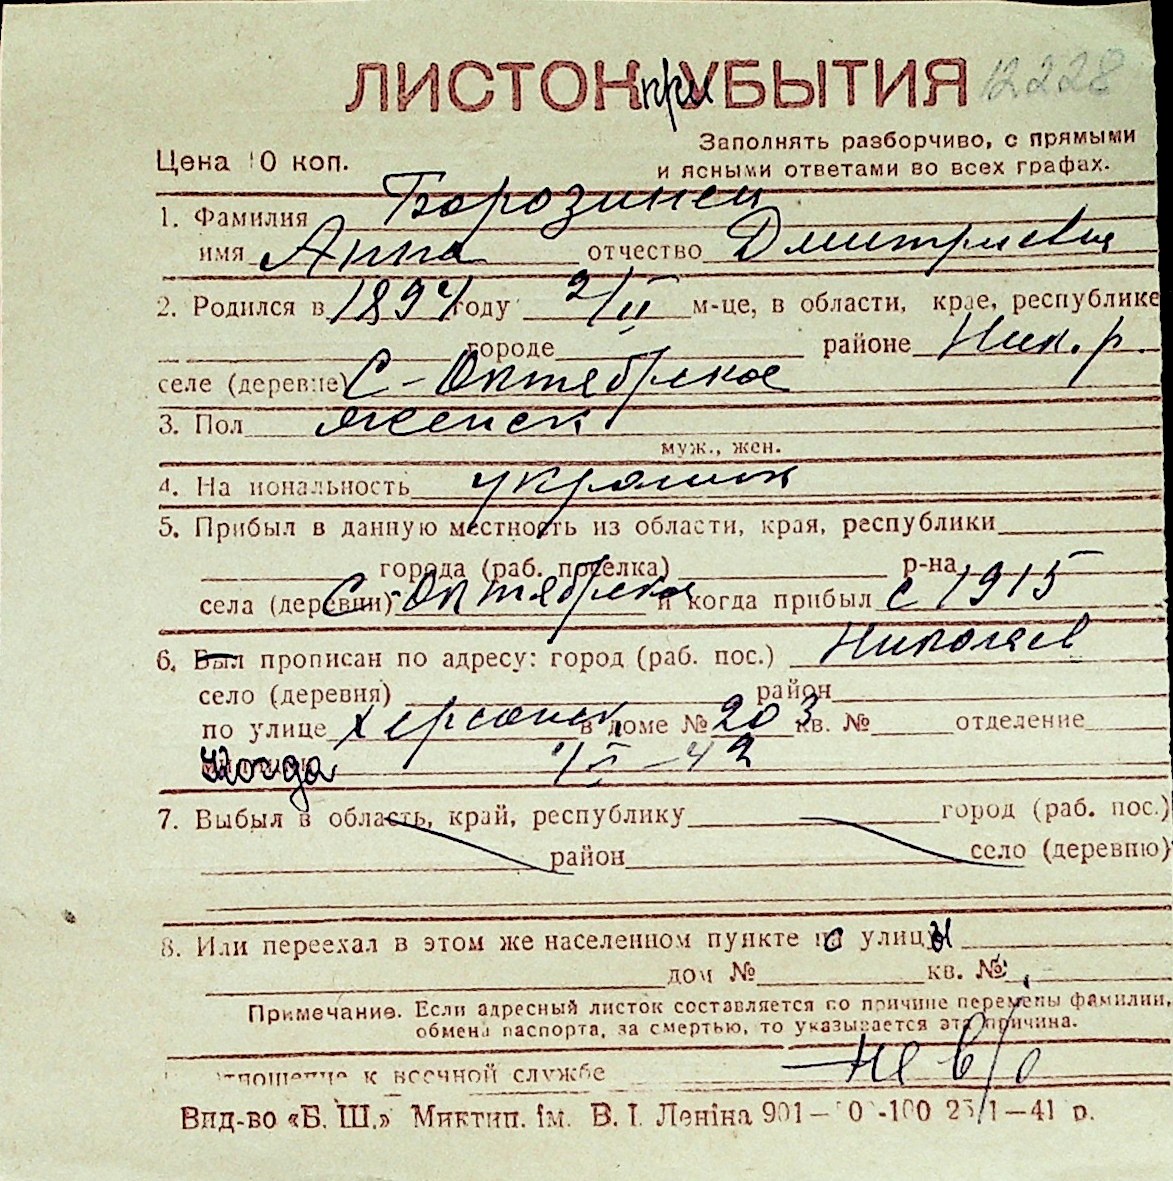 ЛИСТОК при УБЫТИЯ 12228
Заполнять разборчиво, с прямыми
Цена 10 коп. и ясными ответами во всех графах.
1. Фамилия Борозинец
имя Анна отчество Дмитриевна
2. Родился в 1894 году 2/II м-це, в области, крае, республике
городе районе Ник. р.
селе (деревне) С-Октябрьское
3. Пол женск
муж., жен.
4. Национальность украинк
5. Прибыл в данную местность из области, края, республики
города (раб. поселка) р-на
села (деревни) С-Октябрьское и когда прибыл с 1915
6. Был прописан по адресу: город (раб. пос.) Николаев
село (деревня) район
по улице Херсонск в доме № 203 кв. № отделение
Когда
7. Выбыл в область, край, республику город (раб. пос.)
район село (деревню)
8. Или переехал в этом же населенном пункте с улицы
дом № кв. №
Примечание. Если адресный листок составляется по причине перемены фамилии,
обмена паспорта, за смертью, то указывается эта причина.
отношение к военной службе не в/о
Вид-во «Б. Ш.» Миктип. ім. В. І. Леніна 901— 0 -100 25/1—41 р.